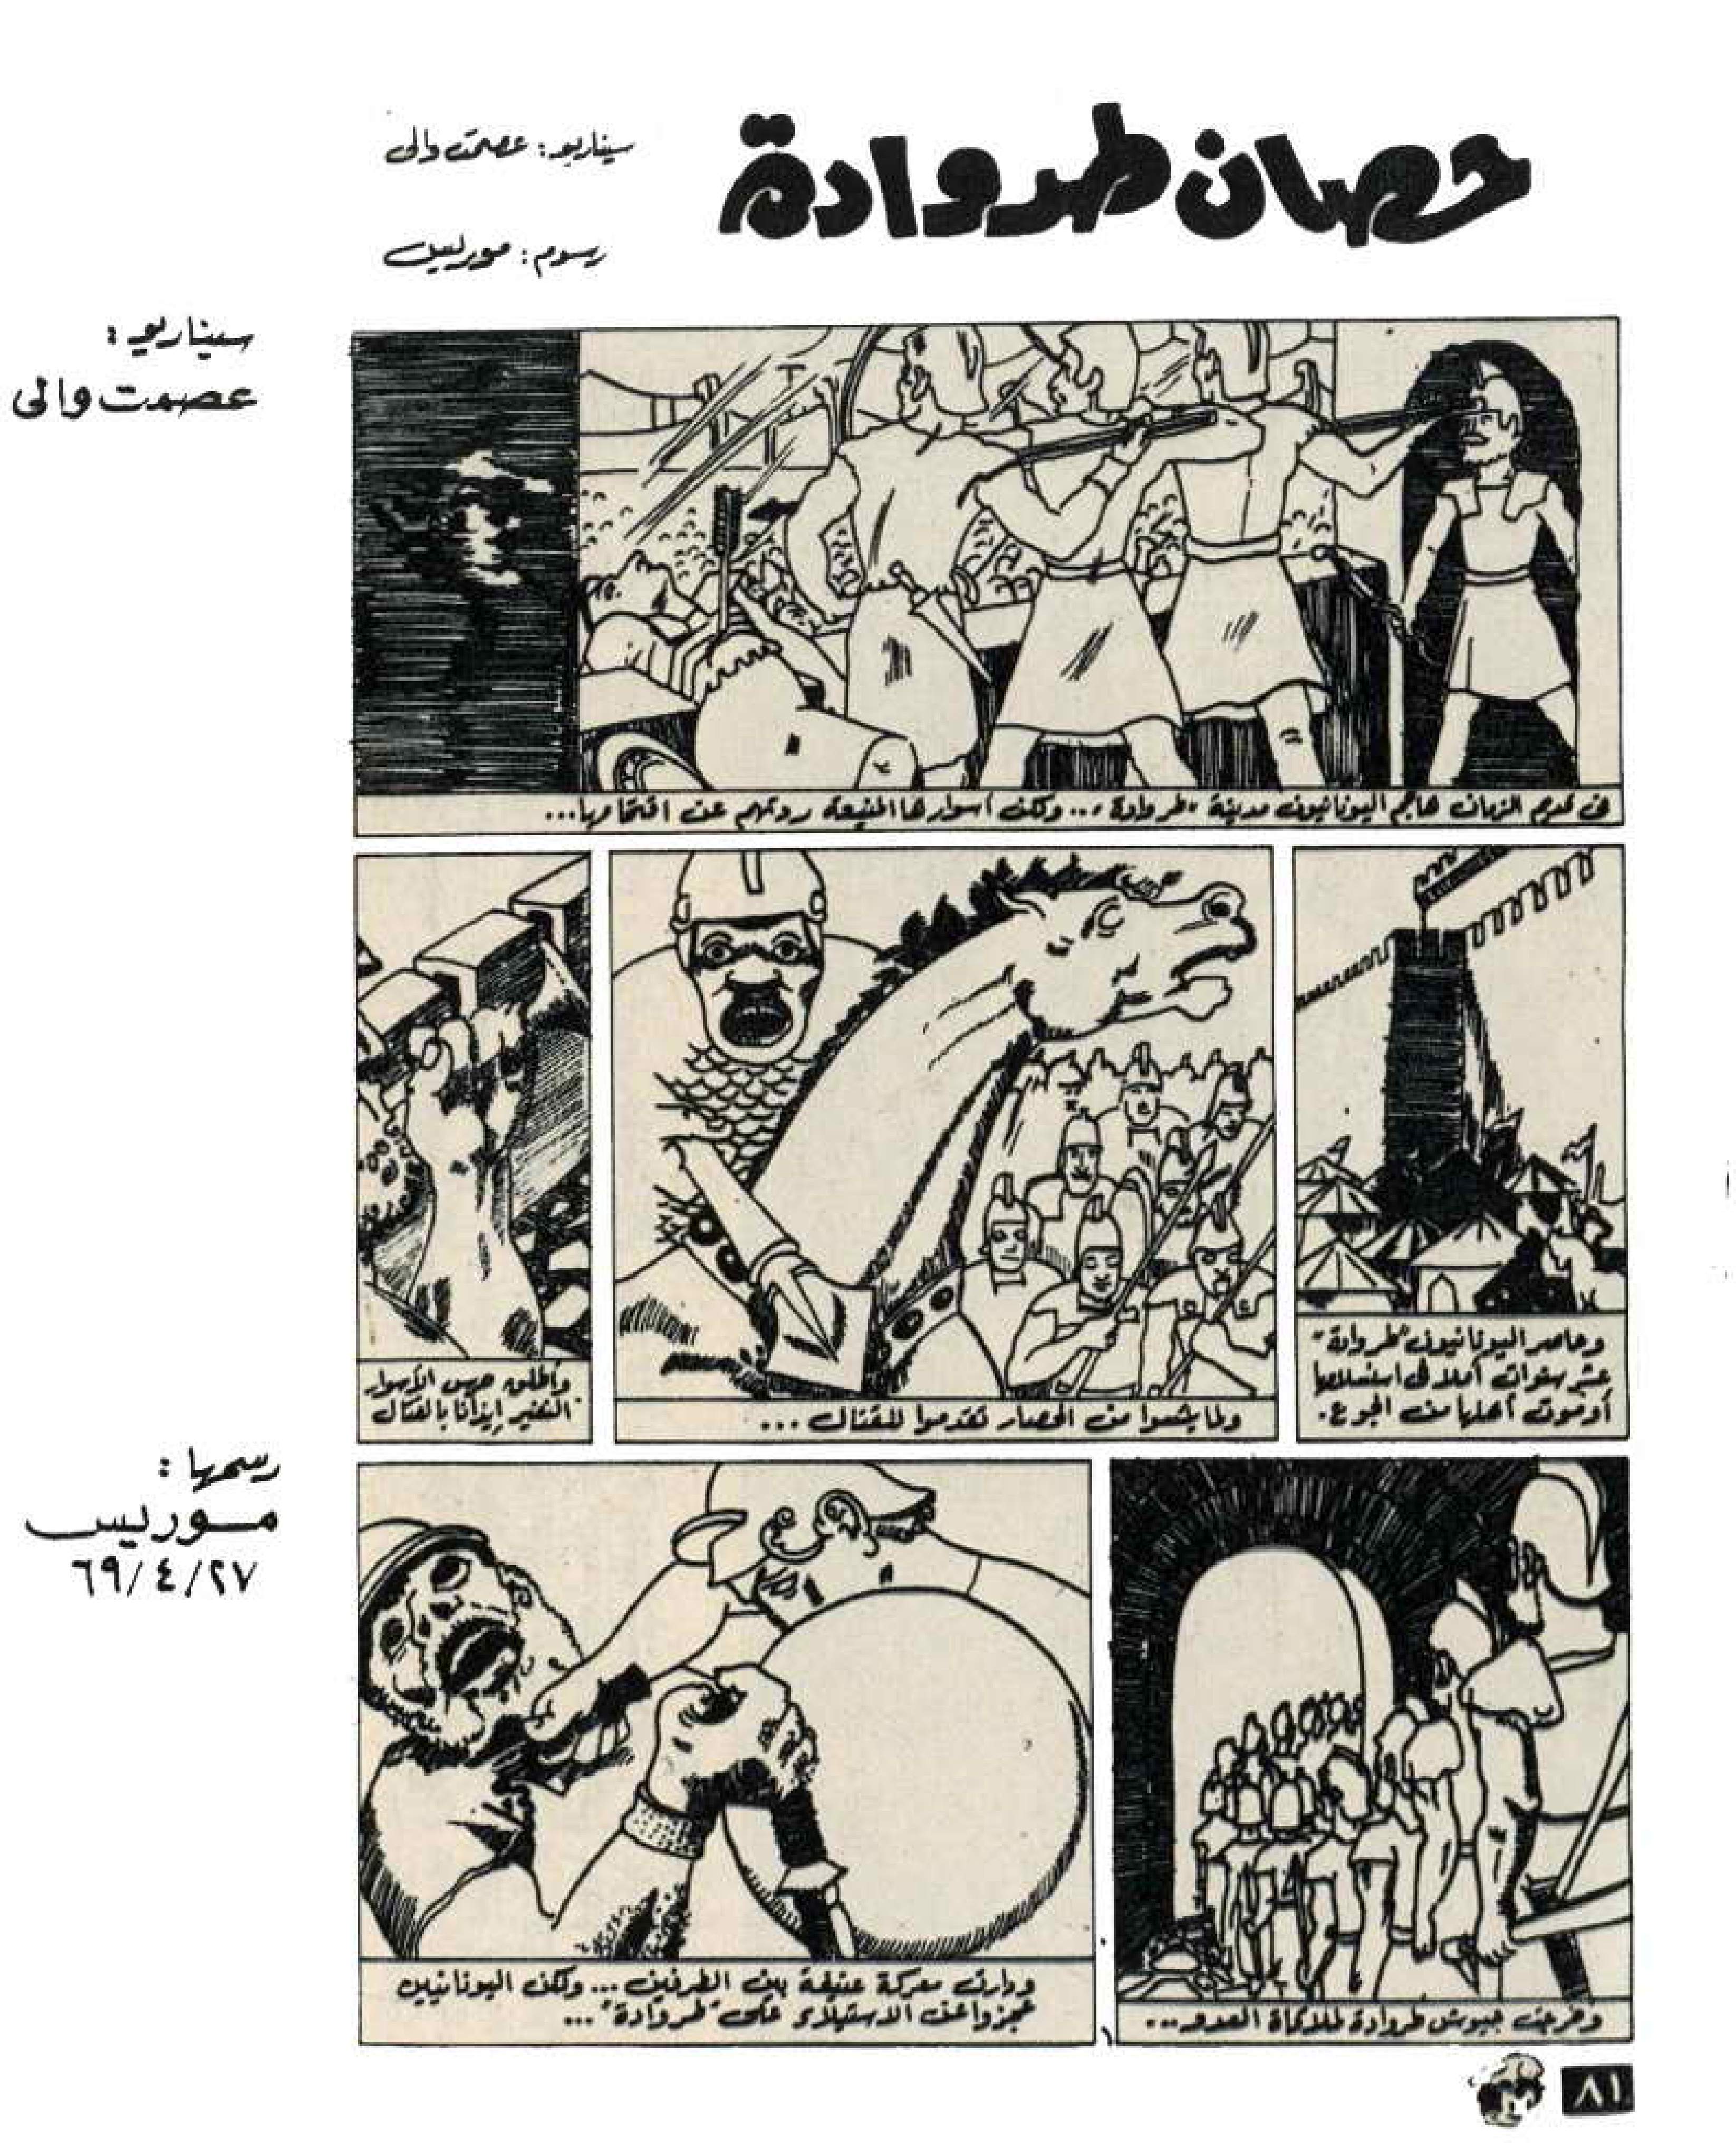 حصان طروادة
سيناريو: عصمت والى
رسوم: موريس
سيناريو:
عصمت والى
فى قديم الزمان هاجم اليونانيون مدينة "طروادة"... ولكن أسوارها المنيعة ردتهم عن اقتحامها...
وحاصر اليونانيون "طروادة"
عشر سنوات أملا فى استسلامها
أو موت أهلها من الجوع.
ولما يئسوا من الحصار تقدموا للقتال ...
وأطلق حرس الأسوار
النفير إيذانا بالقتال
رسمها:
موريس
٦٩/٤/٢٧
وخرجت جيوش طروادة لملاقاة العدو...
ودارت معركة عنيفة بين الطرفين ... ولكن اليونانيين
عجزوا عن الاستيلاء على "طروادة"...
٨١